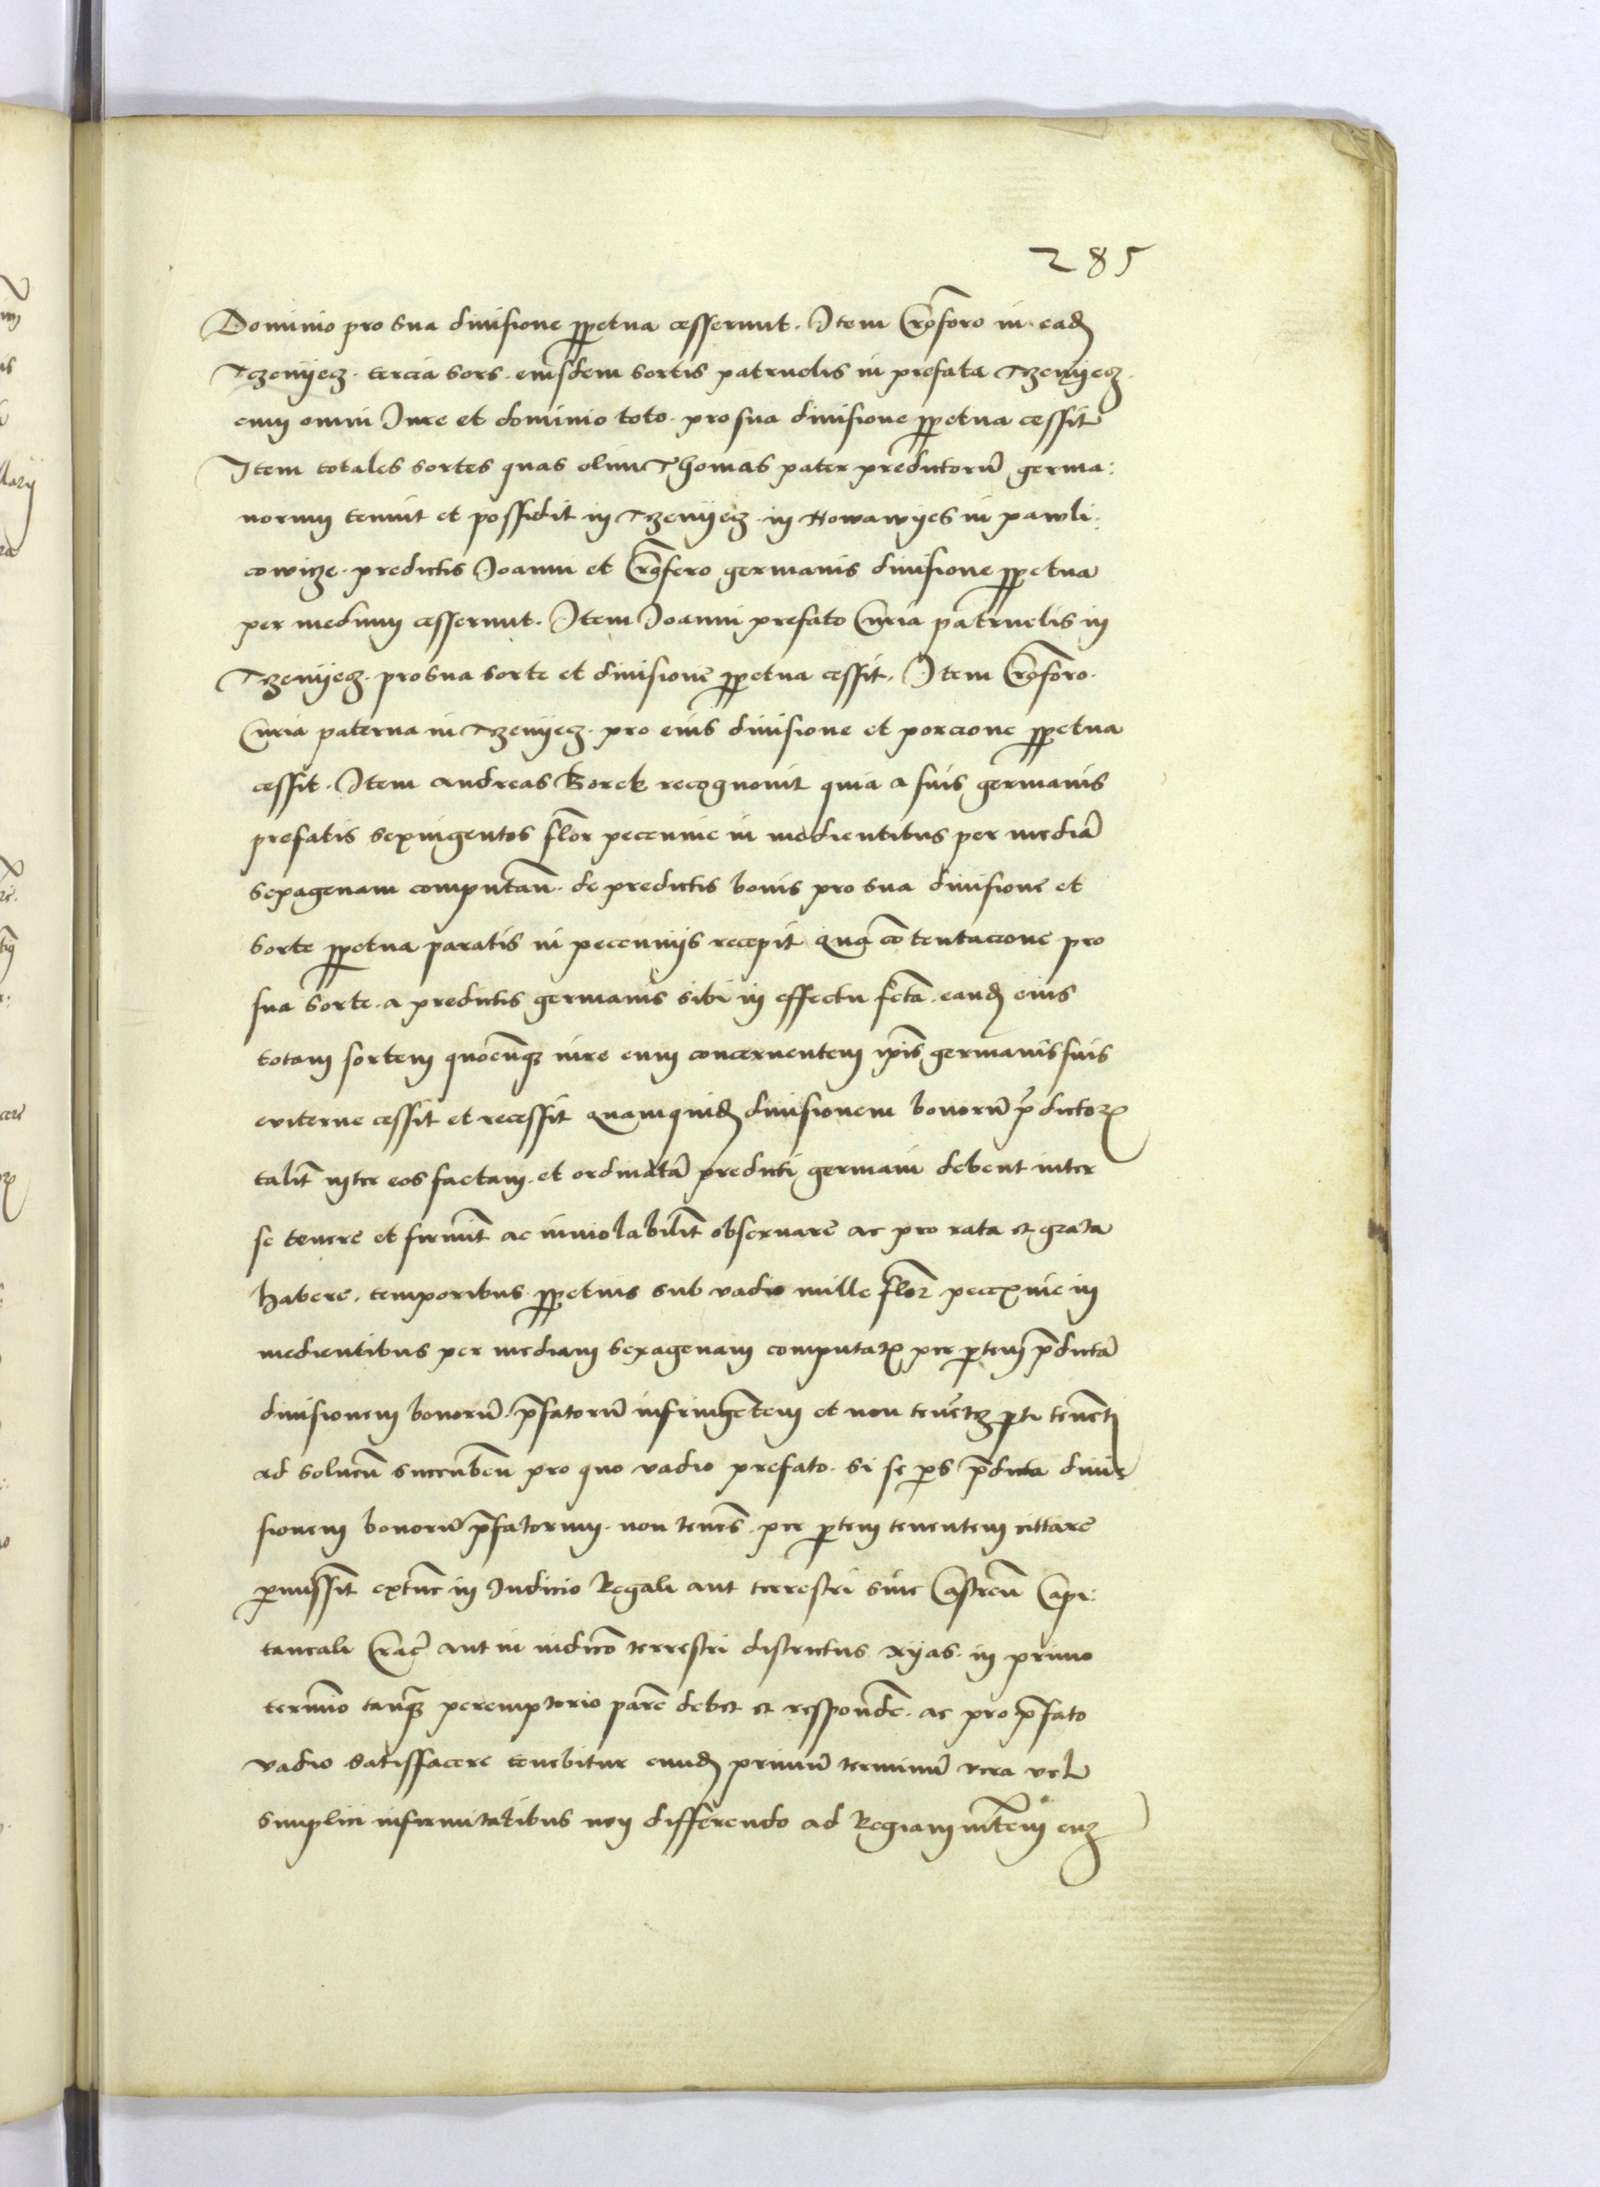 285
Dominio pro sua divisione ppetua cesserunt. Item Crofforo in eadẽ
Tzenyecz. tercia sors. eiusdem sortis patruelis in prefata Tzenyecz.
cum omni Jure et dominio toto. pro sua divisione ppetua cessit
Item totales sortes quas olim Thomas pater predictorũ germa:
norum tenuit et possidit in Tzenyecz. in Howawyes in pawli:
cowicze. predictis Joanni et Croffero germanis divisione ppetua
per medium cesserunt. Item Joanni prefato Curia patruelis in
Tzenyecz. pro sua sorte et divisione ppetua cessit. Item Crofforo.
Curia paterna in Tzenyecz. pro eius divisione et porcione ppetua
cessit. Item Andreas Borek recognovit quia a suis germanis
prefatis sexingentos flor pecunie in medientibus per mediã
sexagenam computan. de predictis bonis pro sua divisione et
sorte ppetua paratis in pecuniys recepit qua cõtentacione pro
sua sorte. a predictis germanis sibi in effectu fcta. eandẽ eius
totam sortem quocunq iure eum concernentem ipis germanis suis
eviterne cessit et recessit quamquidẽ divisionem bonorũ p̃dictor
talit inter eos factam. et ordinatã predicti germani debent inter
se tenere et firmit ac inviolabilit observare ac pro rata et grata
habere. temporibus. ppetuis sub vadio mille flor pecunie in
medientibus per mediam sexagenam computat per ptem p̃dictã
divisionem bonorũ. p̃fatorũ infringẽtem et non tenẽtẽ pti tenẽti
ad solucñ succubeñ pro quo vadio prefato. si se ps p̃dicta divi
sionem bonorũ p̃fatorum. non tenẽs. per ptem tenentem cittare
pmissit extũc in Judicio Regali aut terrestri sive Castreñ Capi:
taneali Crac aut in iudicõ terrestri districtus Xyas. in primo
termĩo tanq̃ peremptorio parẽ debet et respondẽ. ac pro p̃fato
vadio satisfacere tenebitur eundẽ primũ terminũ vera vel
simplici infirmitatibus non differendo ad Regiam mtem euz